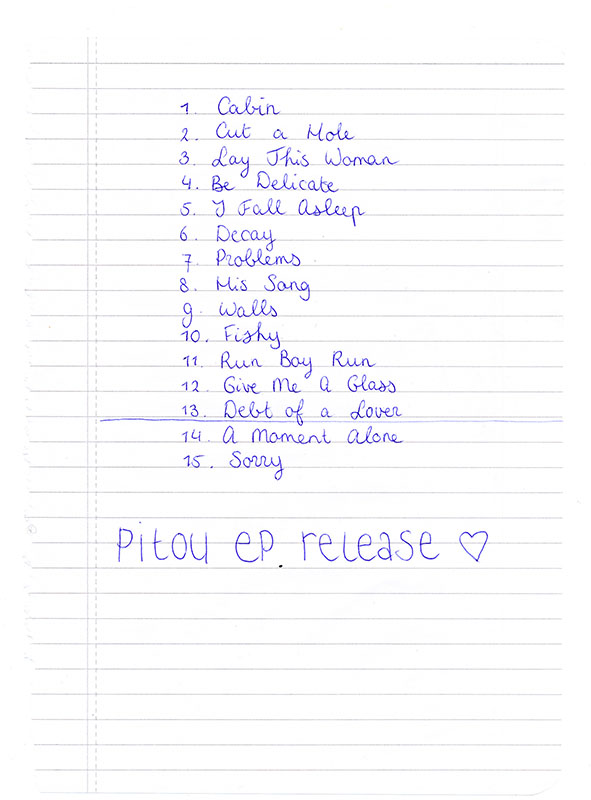 1. Cabin
2. Cut a Hole
3. Lay This Woman
4. Be Delicate
5. I Fall Asleep
6. Decay
7. Problems
8. His Song
9. Walls
10. Fishy
11. Run Boy Run
12. Give Me A Glass
13. Debt of a Lover
14. A Moment Alone
15. Sorry
Pitou EP. release ♡